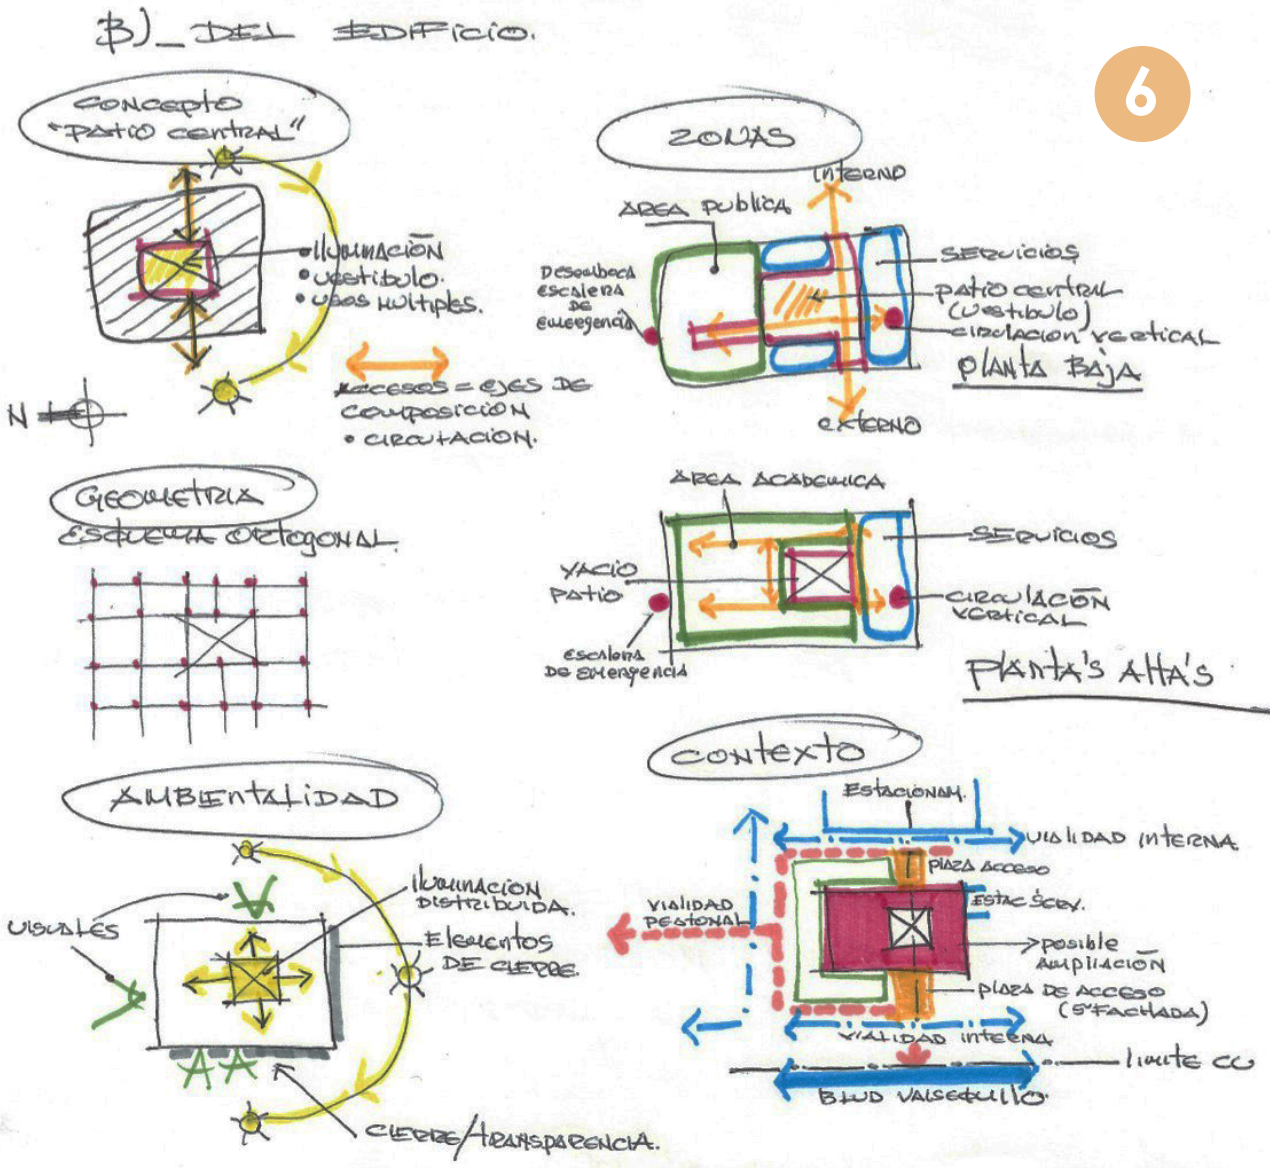 B)_ DEL EDIFICIO.
6
CONCEPTO
"PATIO CENTRAL"
• ILUMINACIÓN
• VESTIBULO.
• USOS MULTIPLES.
ACCESOS = EJES DE
COMPOSICIÓN
• CIRCULACIÓN.
N
ZONAS
INTERNO
AREA PUBLICA
DESEMBOCA
ESCALERA
DE
EMERGENCIA
SERVICIOS
PATIO CENTRAL
(VESTIBULO)
CIRCULACION VERTICAL
PLANTA BAJA
EXTERNO
GEOMETRIA
ESQUEMA ORTOGONAL.
AREA ACADEMICA
VACIO
PATIO
SERVICIOS
CIRCULACIÓN
VERTICAL
ESCALERA
DE EMERGENCIA
PLANTA'S ALTA'S
AMBIENTALIDAD
VISUALES
ILUMINACION
DISTRIBUIDA.
ELEMENTOS
DE CIERRE.
CIERRE/TRANSPARENCIA.
CONTEXTO
ESTACIONAM.
VIALIDAD INTERNA.
PLAZA ACCESO
VIALIDAD
PEATONAL
ESTAC SERV.
POSIBLE
AMPLIACIÓN
PLAZA DE ACCESO
(5ª FACHADA)
VIALIDAD INTERNA
LIMITE CU
BLVD VALSEQUILLO.